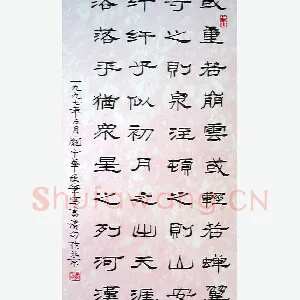 或重若崩雲或輕若蟬翼
導之則泉注頓之則山安
纖纖乎似初月之出天涯
落落乎猶眾星之列河漢
一九九七年
Shufawang.CN